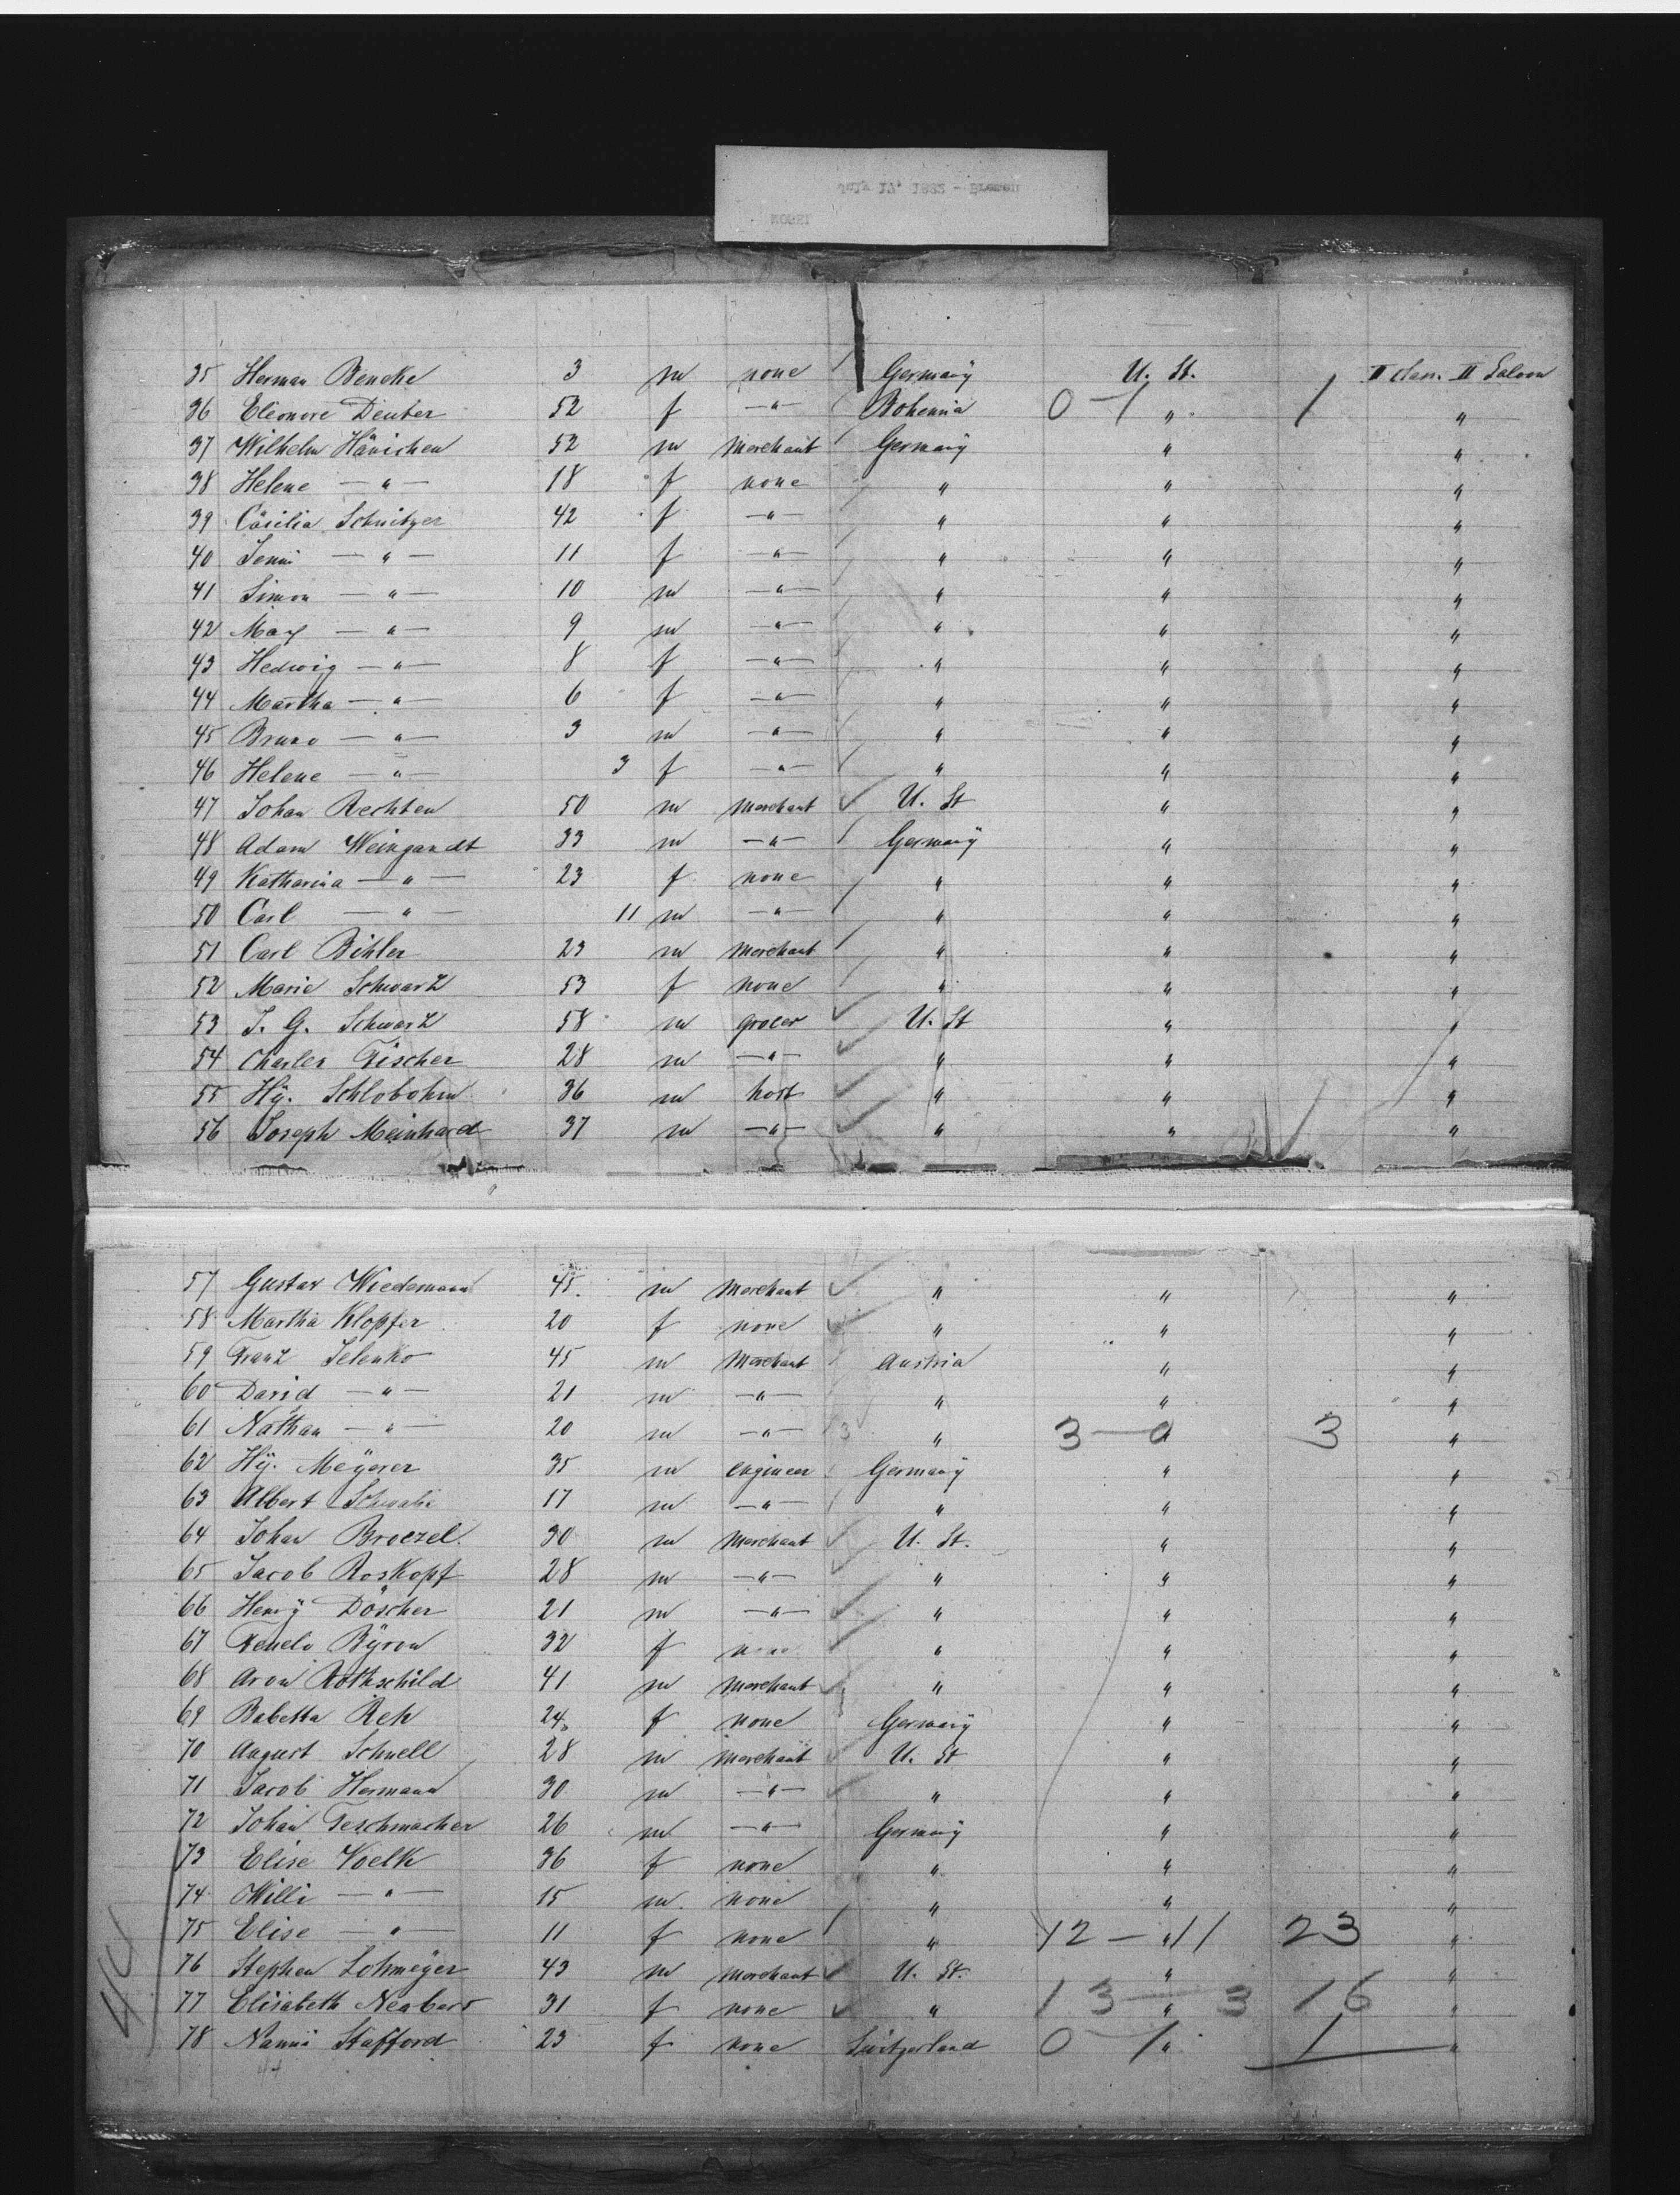 35 Herman Bencke 3 m none / Germany U. St. II class. II Saloon
36 Eleonore Deuter 52 f —"— Bohemia 0 — 1 " 1 "
37 Wilhelm Hänichen 52 m merchant / Germany " "
38 Helene —"— 18 f none / " " "
39 Cäcilia Schnitzer 42 f —"— / " " "
40 Jenni —"— 11 f —"— / " " "
41 Simon —"— 10 m —"— / " " "
42 Max —"— 9 m —"— / " " "
43 Hedwig —"— 8 f —"— / " " "
44 Martha —"— 6 f —"— / " " "
45 Bruno —"— 3 m —"— / " " "
46 Helene —"— 3 f —"— / " " "
47 Johan Rechten 50 m merchant ✓ U. St " "
48 Adam Weingandt 33 m —"— / Germany " "
49 Katharina —"— 23 f none / " " "
50 Carl —"— 11 m —"— / " " "
51 Carl Bihler 23 m merchant / " " "
52 Marie Schwarz 53 f none / " " "
53 J. G. Schwarz 58 m grocer ✓ U. St " "
54 Charles Fischer 28 m —"— ✓ " " "
55 Hy. Schlobohm 36 m host ✓ " " "
56 Joseph Meinhard 37 m —"— ✓ " " "
57 Gustav Wiedemann 45 m merchant ✓ " " "
58 Martha Klopfer 20 f none ✓ " " "
59 Franz Jelenko 45 m merchant / Austria " "
60 David —"— 21 m —"— " " "
61 Nathan —"— 20 m —"— 3 ✓ " 3 — 0 " 3 "
62 Hy. Meyerer 35 m engineer / Germany " "
63 Albert 17 m —"— / " " "
64 Johan Broezel 30 m merchant ✓ U. St. " "
65 Jacob Roskopf 28 m —"— ✓ " " "
66 Henry Döscher 21 m —"— ✓ " " "
67 Byron 32 f none ✓ " " "
68 Aron Rothschild 41 m merchant ✓ " " "
69 Babetta Reh 24 f none Germany " "
70 August Schnell 28 m merchant ✓ U. St " "
71 Jacob Hermann 30 m —"— ✓ " " "
72 Johan Teschmacher 26 m —"— Germany " "
73 Elise Voelk 36 f none " " "
74 Willi —"— 15 m none " " "
75 Elise —"— 11 f none / " 12 — 11 " 23 "
76 Stephen Lohmeyer 43 m merchant ✓ U. St. " "
77 Elisabeth 31 f none ✓ " 13 — 3 " 16 "
78 Nanni Stafford 23 f none Switzerland 0 — 1 " 1 "
44